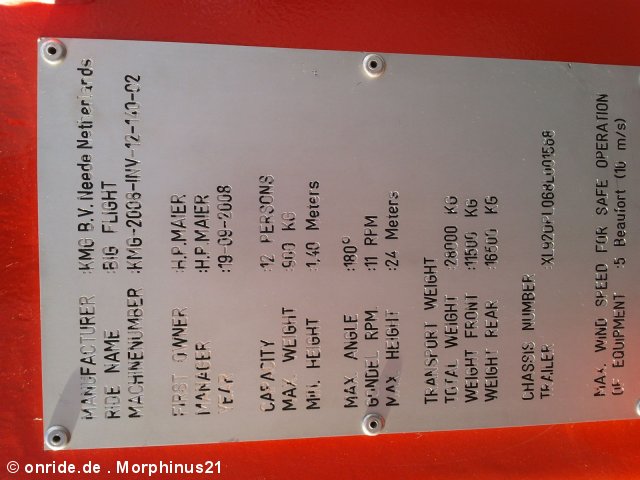 MANUFACTURER :KMG B.V. Neede Netherlands
RIDE NAME :BIG FLIGHT
MACHINENUMBER :KMG-2008-INV-12-140-02
FIRST OWNER :H.P.MAIER
MANAGER :H.P.MAIER
YEAR :19-09-2008
CAPACITY :12 PERSONS
MAX. WEIGHT :900 KG
MIN. HEIGHT :1,40 Meters
MAX. ANGLE :180°
GONDEL RPM. :11 RPM
MAX HEIGHT :24 Meters
TRANSPORT WEIGHT
TOTAL WEIGHT :28000 KG
WEIGHT FRONT :11500 KG
WEIGHT REAR :16500 KG
CHASSIS NUMBER
TRAILER
MAX. WIND SPEED FOR SAFE OPERATION
OF EQUIPMENT :5 Beaufort (10 m/s)
© onride.de . Morphinus21